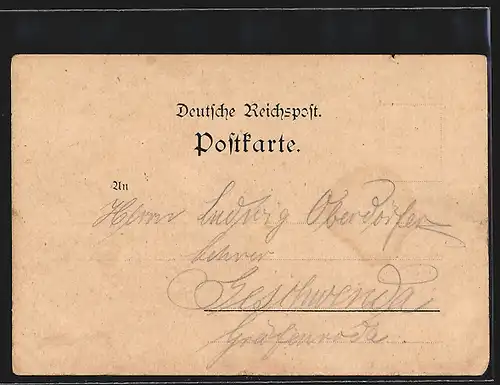 Deutsche Reichspost.
Postkarte.
An
Herrn Ludwig Oberdörfer
Lehrer
Geschwenda
Gräfenroda